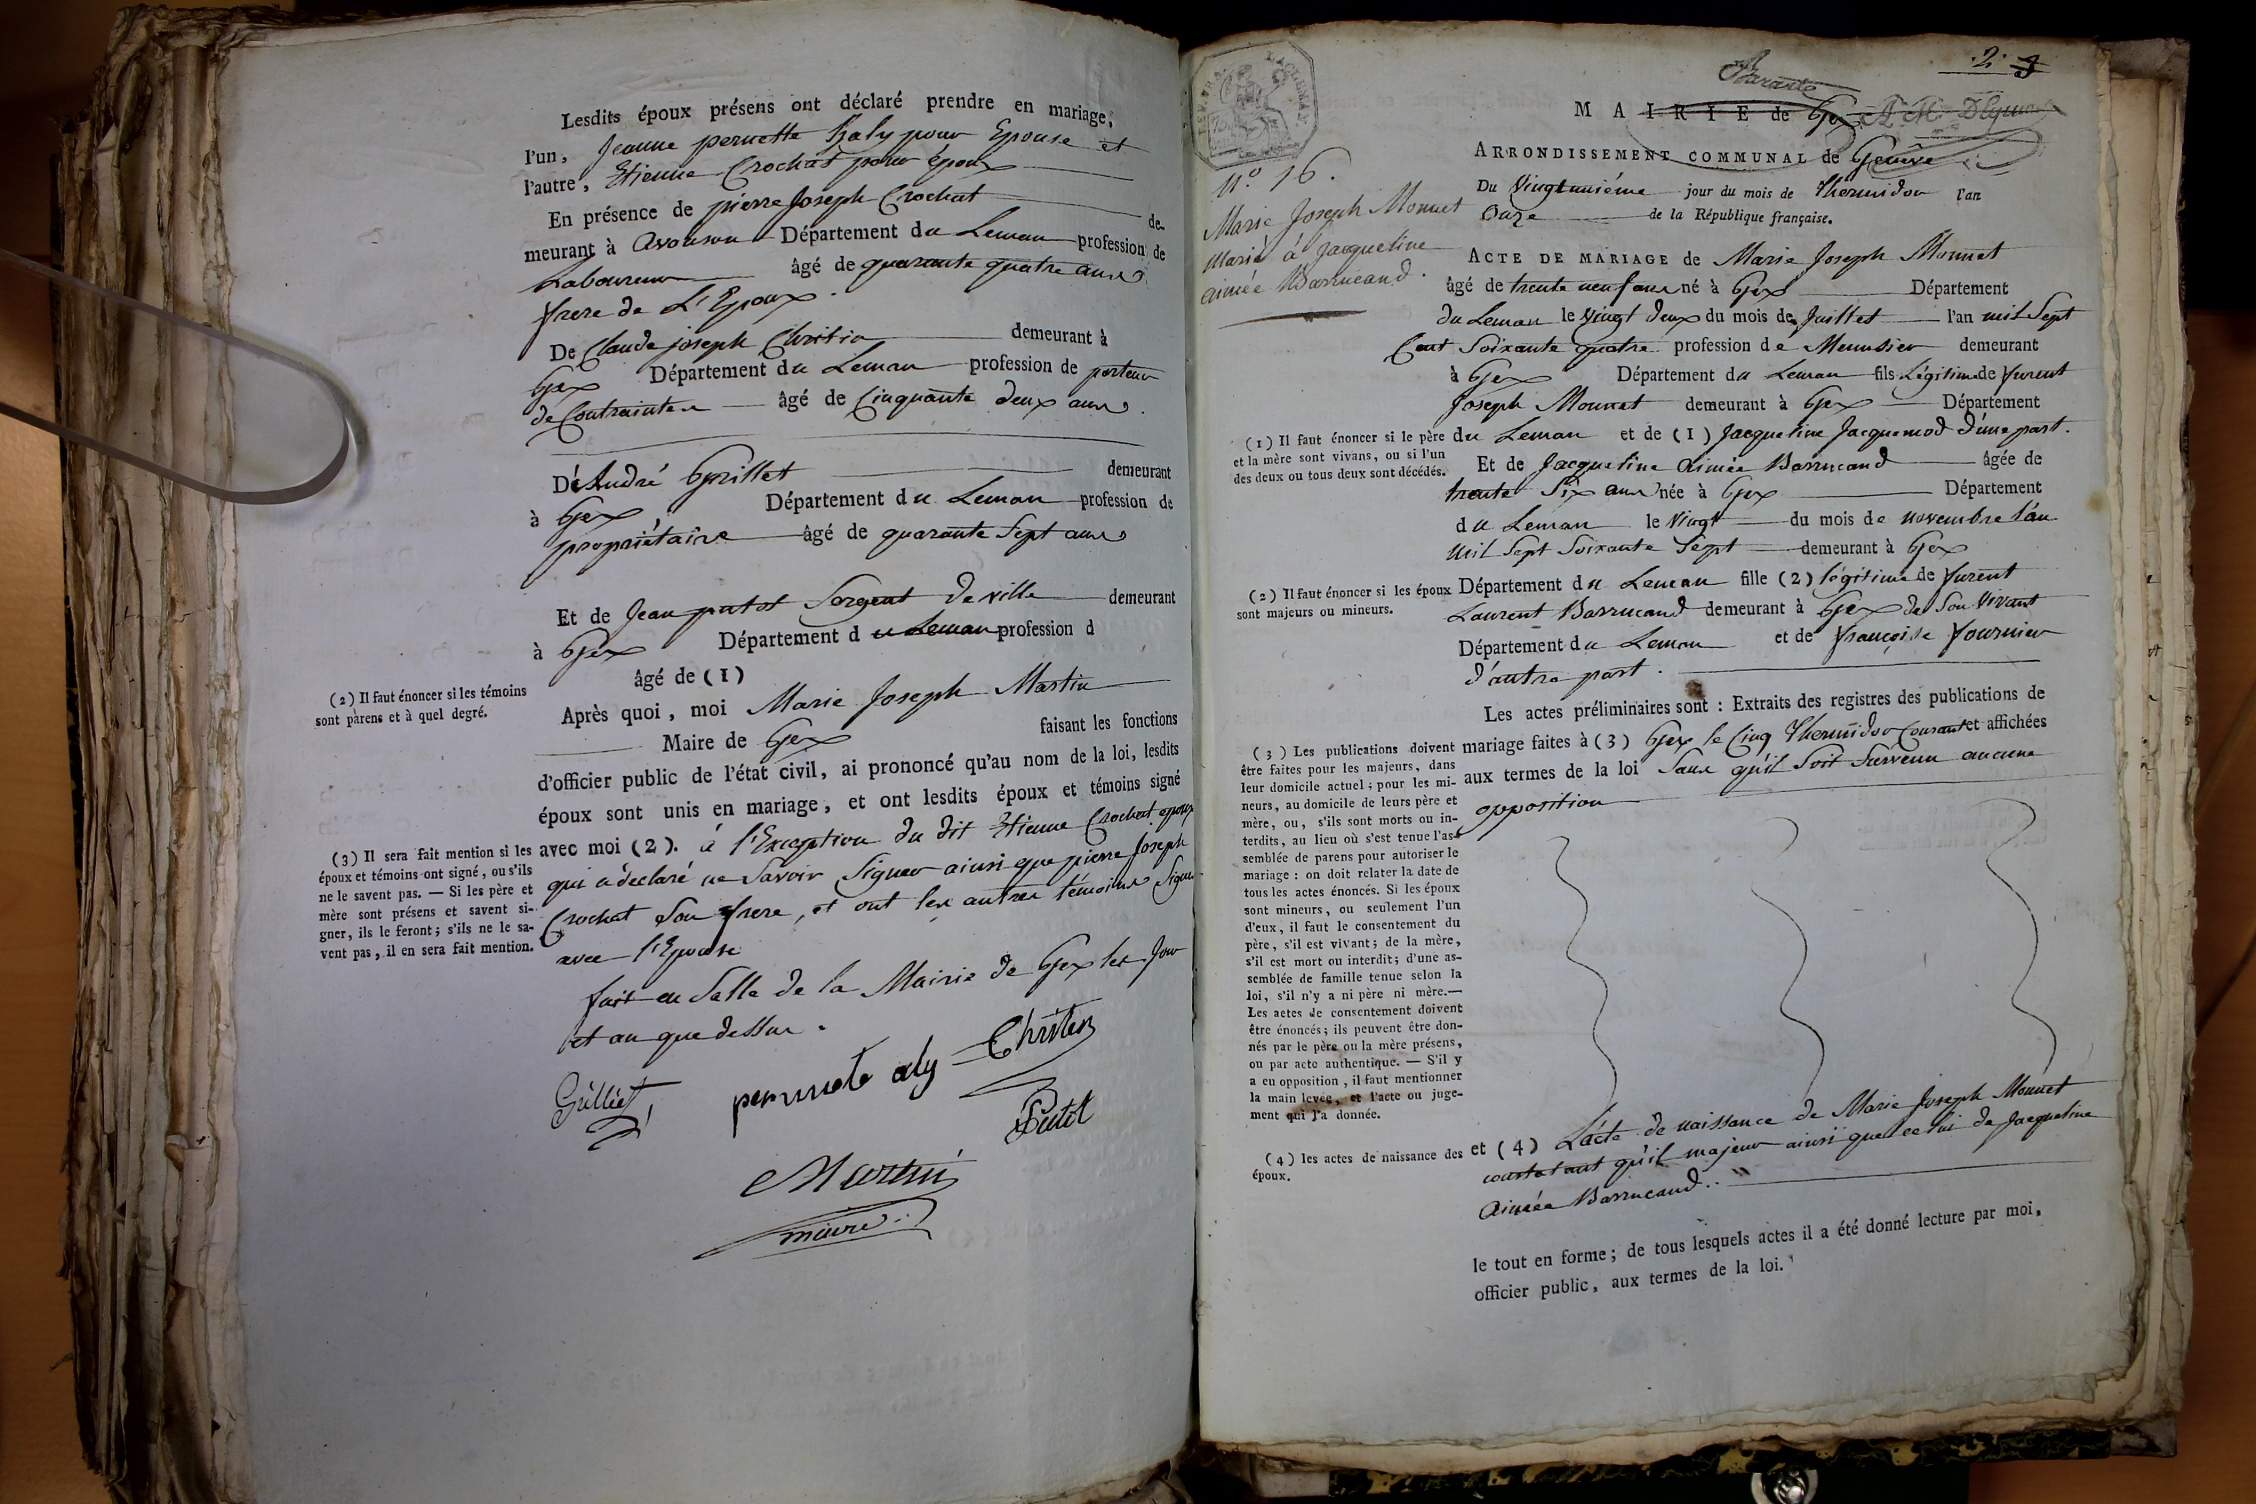 Lesdits époux présens ont déclaré prendre en mariage,
l'un, Jeanne pernette Raly pour Epouse et
l'autre, Etienne Crochat pour époux
En présence de pierre Joseph Crochat de-
meurant à Avouson Département du Leman profession de
Laboureur âgé de quarante quatre ans
frere de L'Epoux.
De Claude joseph Christin demeurant à
Gex Département du Leman profession de porteur
de Contraintes âgé de Cinquante deux ans.
De André Grillet demeurant
à Gex Département du Leman profession de
propriétaire âgé de quarante Sept ans
Et de Jean putot Sergent de ville demeurant
à Gex Département du Leman profession d
âgé de (1)
(2) Il faut énoncer si les témoins
sont parens et à quel degré.
Après quoi, moi Marie Joseph Martin
Maire de Gex faisant les fonctions
d'officier public de l'état civil, ai prononcé qu'au nom de la loi, lesdits
époux sont unis en mariage, et ont lesdits époux et témoins signé
avec moi (2). à l'Exception du dit Etienne Crochat epoux
qui a déclaré ne Savoir Signer ainsi que pierre Joseph
Crochat Son frere, et ont les autres témoins Signé
avec l'Epouse
(3) Il sera fait mention si les
époux et témoins ont signé, ou s'ils
ne le savent pas. — Si les père et
mère sont présens et savent si-
gner, ils le feront; s'ils ne le sa-
vent pas, il en sera fait mention.
fait en Salle de la Mairie de Gex les Jour
et an que dessus.
Grilliet
pernnete aly
Christin
Putot
Martin
maire
2. 3
Barante
MAIRIE de Gex
ARRONDISSEMENT COMMUNAL de Genêve
N.º 16.
Marie Joseph Monnet
Marié à Jacqueline
aimée Barrucand.
Du Vingtunième jour du mois de Thermidor l'an
Onze de la République française.
ACTE DE MARIAGE de Marie Joseph Monnet
âgé de trente neuf ans né à Gex Département
du Leman le Vingt deux du mois de Juillet l'an mil Sept
Cent Soixante quatre profession de Menusier demeurant
à Gex Département du Leman fils Légitime de furent
Joseph Monnet demeurant à Gex Département
du Leman et de (1) Jacqueline Jacquemod d'une part.
(1) Il faut énoncer si le père
et la mère sont vivans, ou si l'un
des deux ou tous deux sont décédés.
Et de Jacqueline Aimée Barrucand âgée de
trente Six ans née à Gex Département
du Leman le Vingt du mois de novembre l'an
mil Sept Soixante Sept demeurant à Gex
Département du Leman fille (2) légitime de furent
Laurent Barrucand demeurant à Gex de Son Vivant
Département du Leman et de françoise fournier
d'autre part.
(2) Il faut énoncer si les époux
sont majeurs ou mineurs.
Les actes préliminaires sont : Extraits des registres des publications de
mariage faites à (3) Gex le Cinq Thermidor Courant et affichées
aux termes de la loi Sans qu'il Soit Survenu aucune
opposition
(3) Les publications doivent
être faites pour les majeurs, dans
leur domicile actuel; pour les mi-
neurs, au domicile de leurs père et
mère, ou, s'ils sont morts ou in-
terdits, au lieu où s'est tenue l'as-
semblée de parens pour autoriser le
mariage : on doit relater la date de
tous les actes énoncés. Si les époux
sont mineurs, ou seulement l'un
d'eux, il faut le consentement du
père, s'il est vivant; de la mère,
s'il est mort ou interdit; d'une as-
semblée de famille tenue selon la
loi, s'il n'y a ni père ni mère.—
Les actes de consentement doivent
être énoncés; ils peuvent être don-
nés par le père ou la mère présens,
ou par acte authentique. — S'il y
a eu opposition, il faut mentionner
la main levée, et l'acte ou juge-
ment qui l'a donnée.
et (4) L'acte de naissance de Marie Joseph Monnet
constatant qu'il majeur ainsi que celui de Jacqueline
Aimée Barrucand.
(4) les actes de naissance des
époux.
le tout en forme; de tous lesquels actes il a été donné lecture par moi,
officier public, aux termes de la loi.